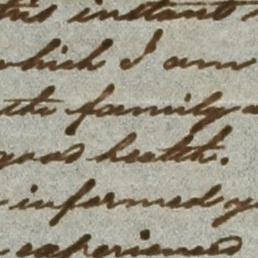 this instant
which I am
with family
good health.
informed
experienced